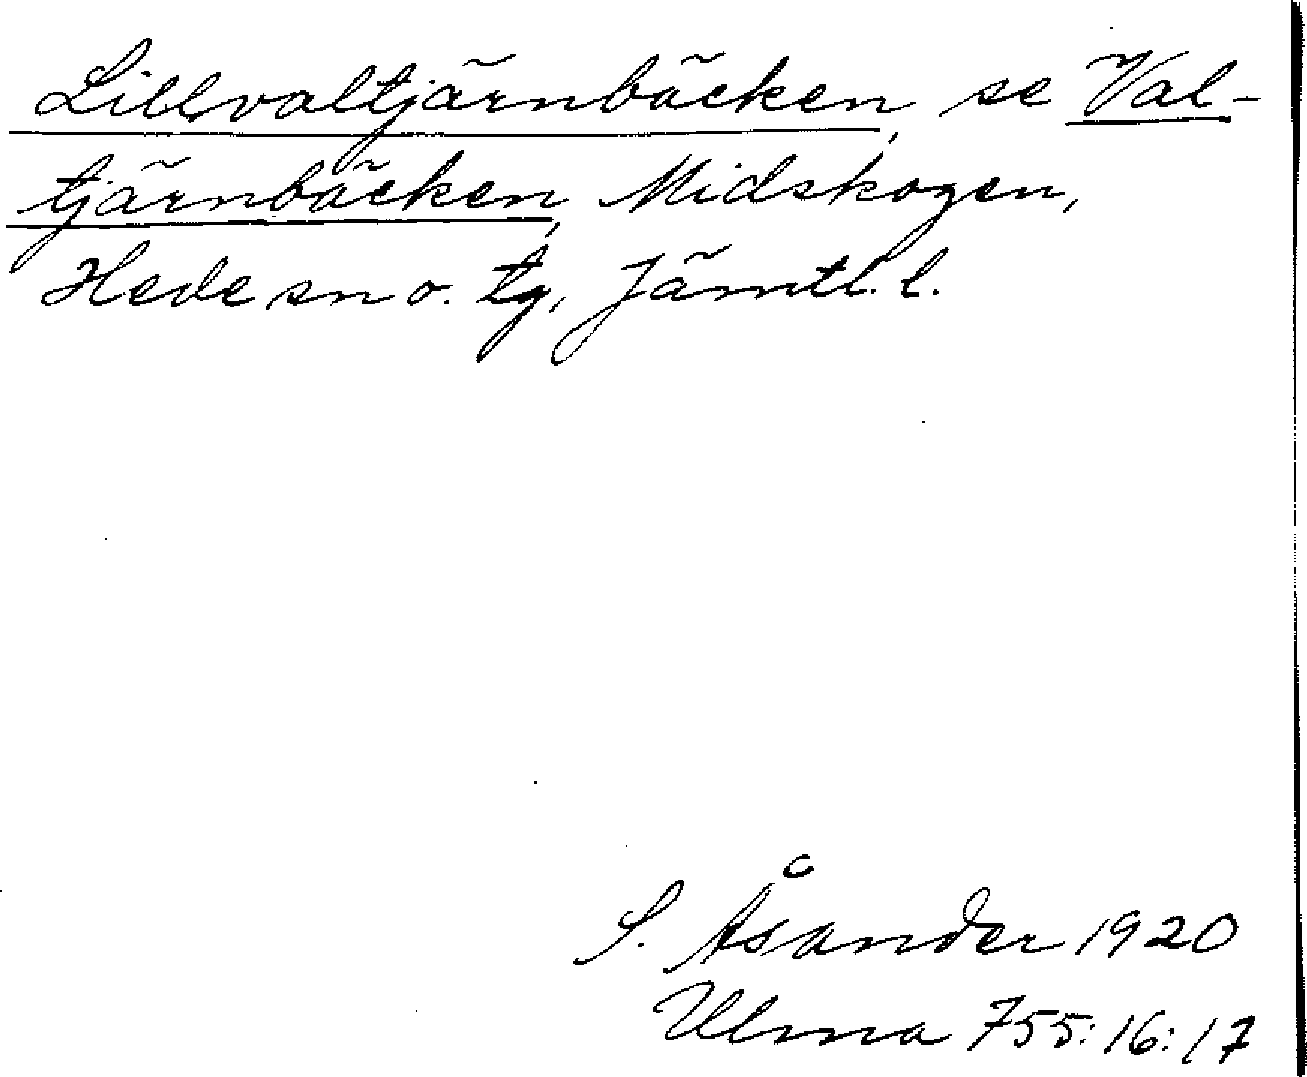 Lillvaltjärnbäcken, se Val-
tjärnbäcken, Midskogen,
Hede sn o. tg, Jämtl. l.
S. Åsander 1920
Ulma 755:16:17